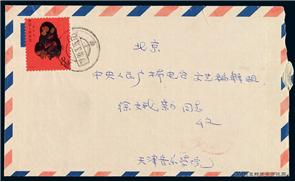 北京
中央人民广播电台文艺编辑组
徐 同志
收
天津音乐学院